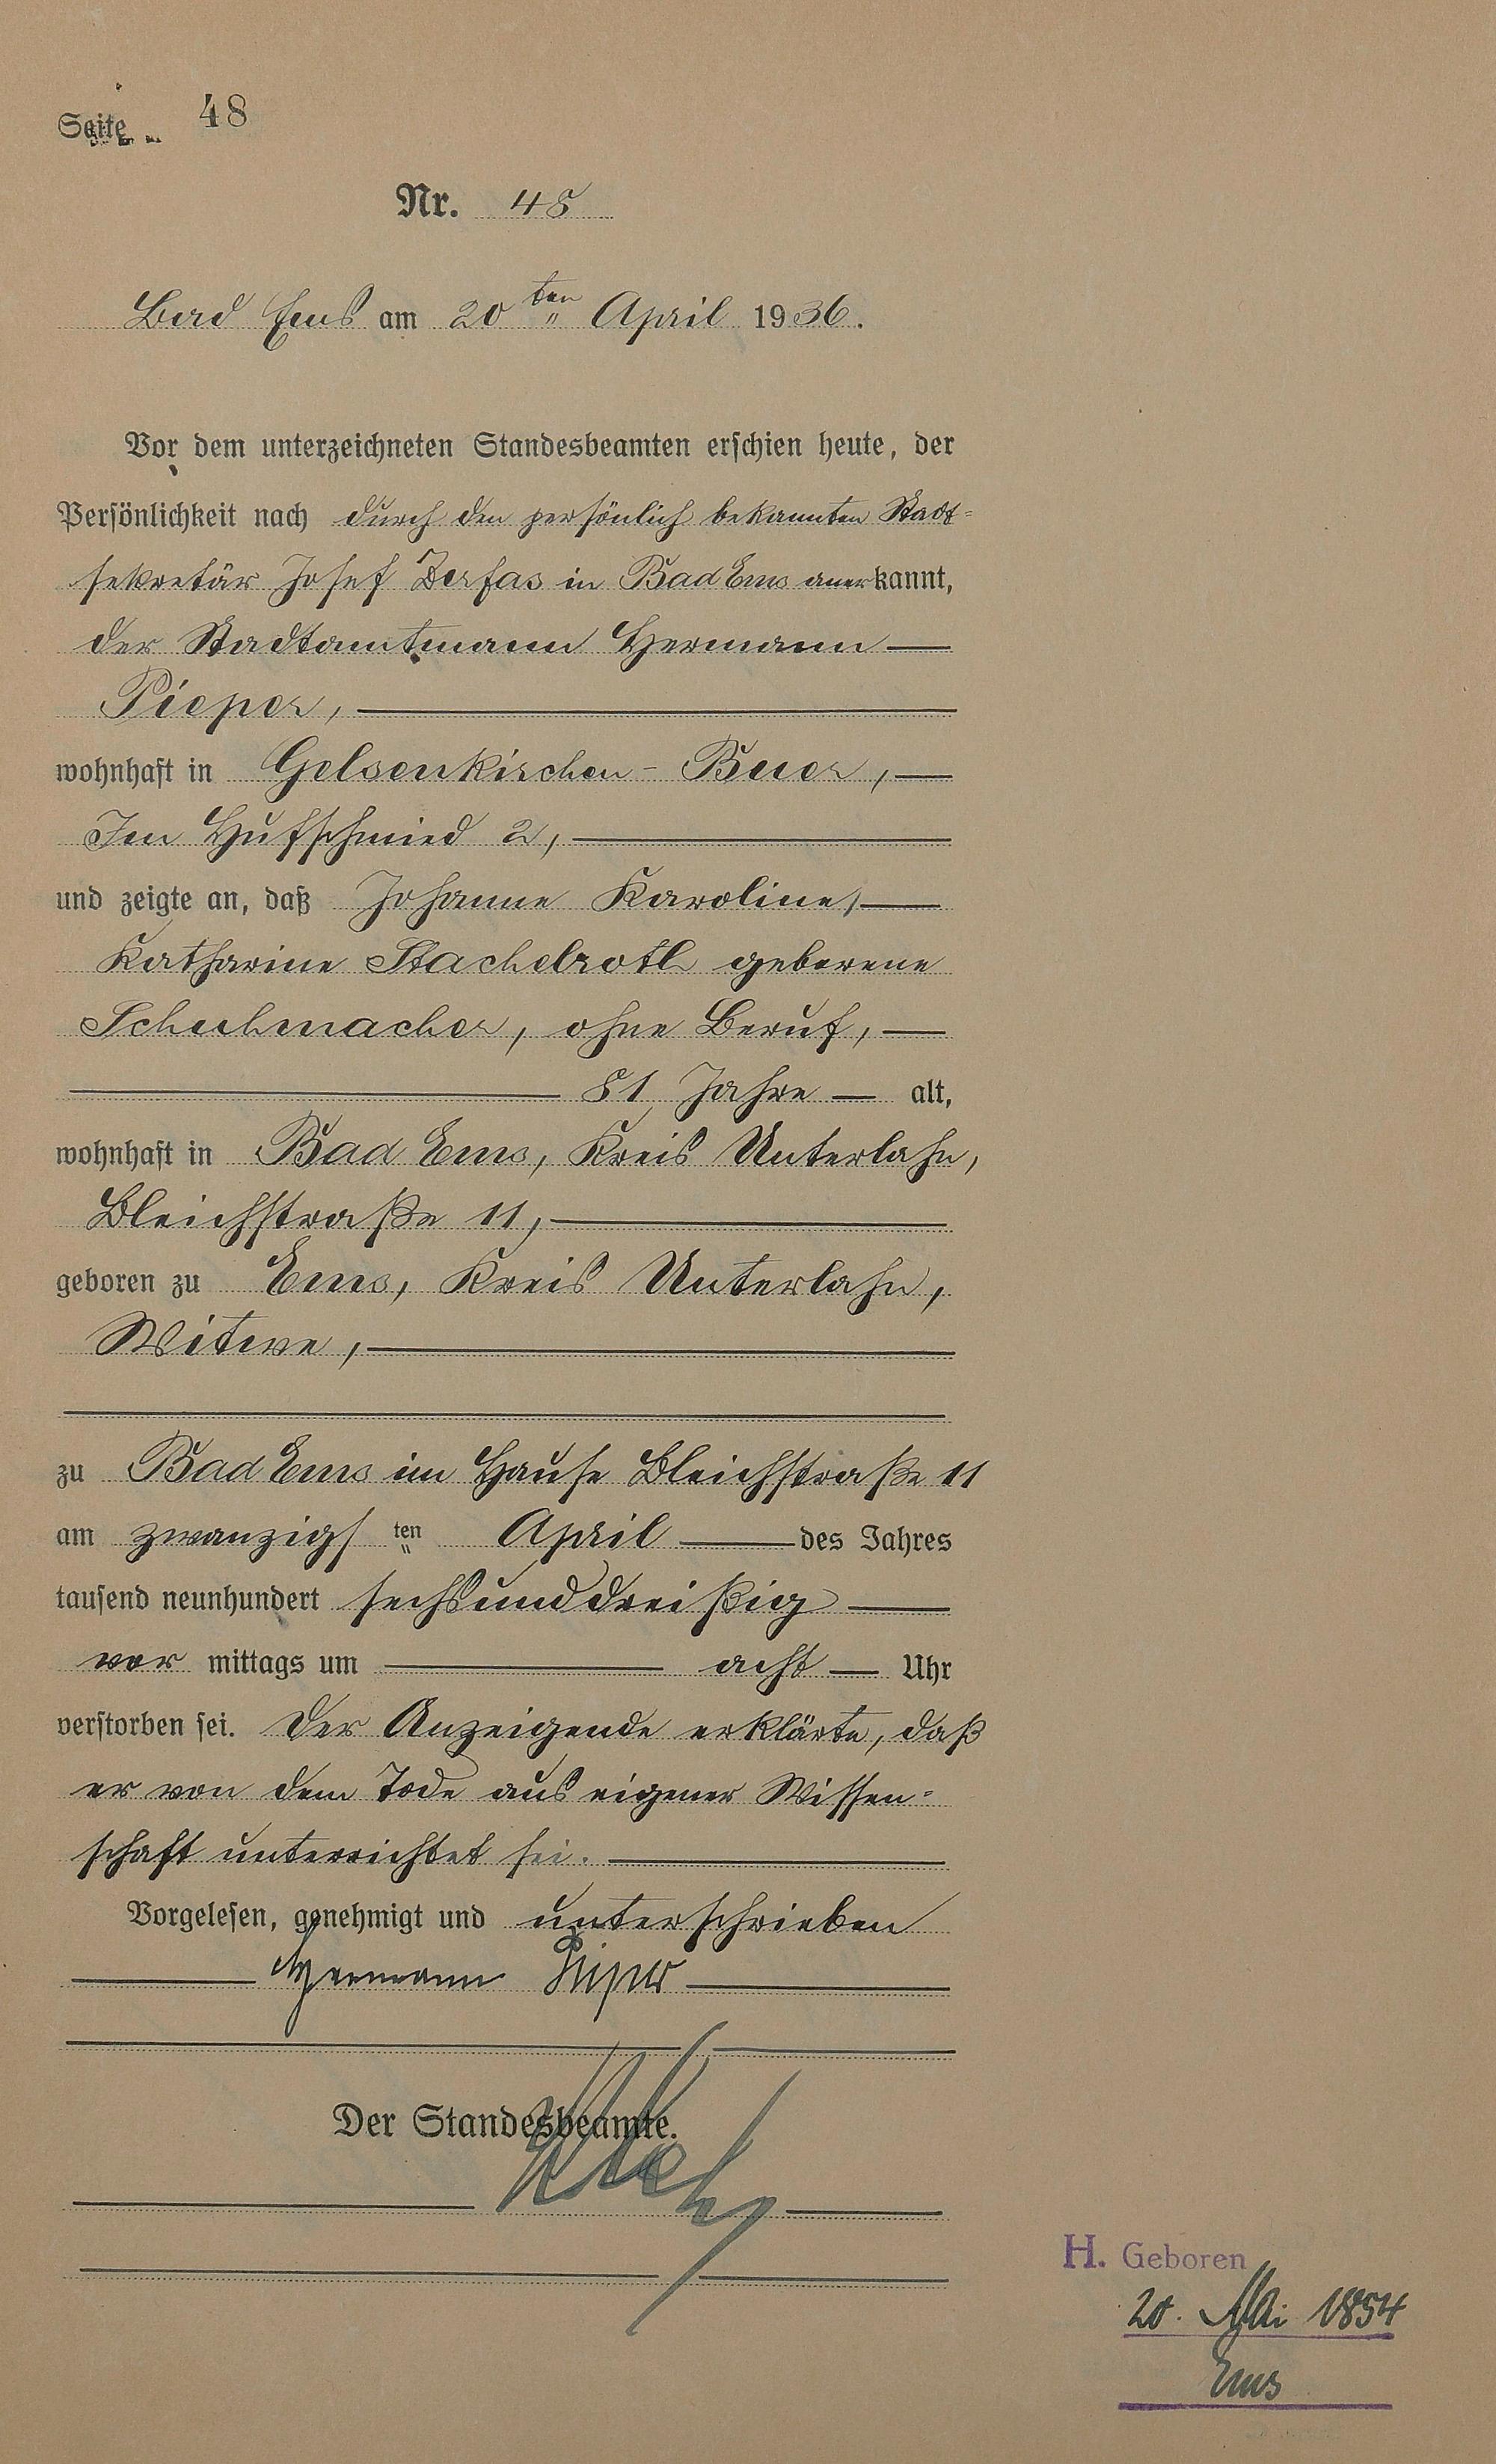 Seite 48
Nr. 48
Bad Ems am 20ten April 1936.
Vor dem unterzeichneten Standesbeamten erschien heute, der
Persönlichkeit nach durch den persönlich bekannten Stadt-
sekretär Josef Zerfas in Bad Ems anerkannt,
der Stadtamtmann Hermann
Pieper,
wohnhaft in Gelsenkirchen-Buer,
Im Hufschmied 2,
und zeigte an, daß Johanne Karoline,
Katharine Stachelroth geborene
Schuhmacher, ohne Beruf,
81 Jahre alt,
wohnhaft in Bad Ems, Kreis Unterlahn,
Bleichstraße 11,
geboren zu Ems, Kreis Unterlahn,
Witwe,
zu Bad Ems im Hause Bleichstraße 11
am zwanzigsten April des Jahres
tausend neunhundert sechsunddreißig
vor mittags um acht Uhr
verstorben sei. Der Anzeigende erklärte, daß
er von dem Tode aus eigener Wissen-
schaft unterrichtet sei.
Vorgelesen, genehmigt und unterschrieben
Hermann Pieper
Der Standesbeamte.
H. Geboren
20. Mai 1854
Ems